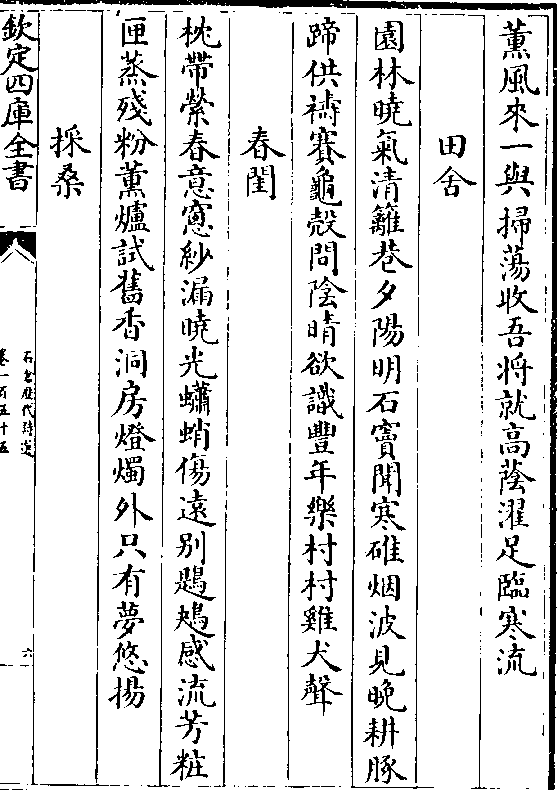 薫風來一與掃蕩收吾将就高蔭濯足臨寒流
田舍
園林曉氣清籬巷夕陽明石竇聞寒碓烟波見晚耕豚
蹄供禱賽龜殼問陰晴欲識豐年樂村村雞犬聲
春閨
枕帶縈春意窓紗漏曉光蠨蛸傷遠別鶗鴂感流芳粧
匣蒸殘粉薫爐試舊香洞房燈燭外只有夢悠揚
採桑
欽定四庫全書
石倉歷代詩選
卷一百五十五
六